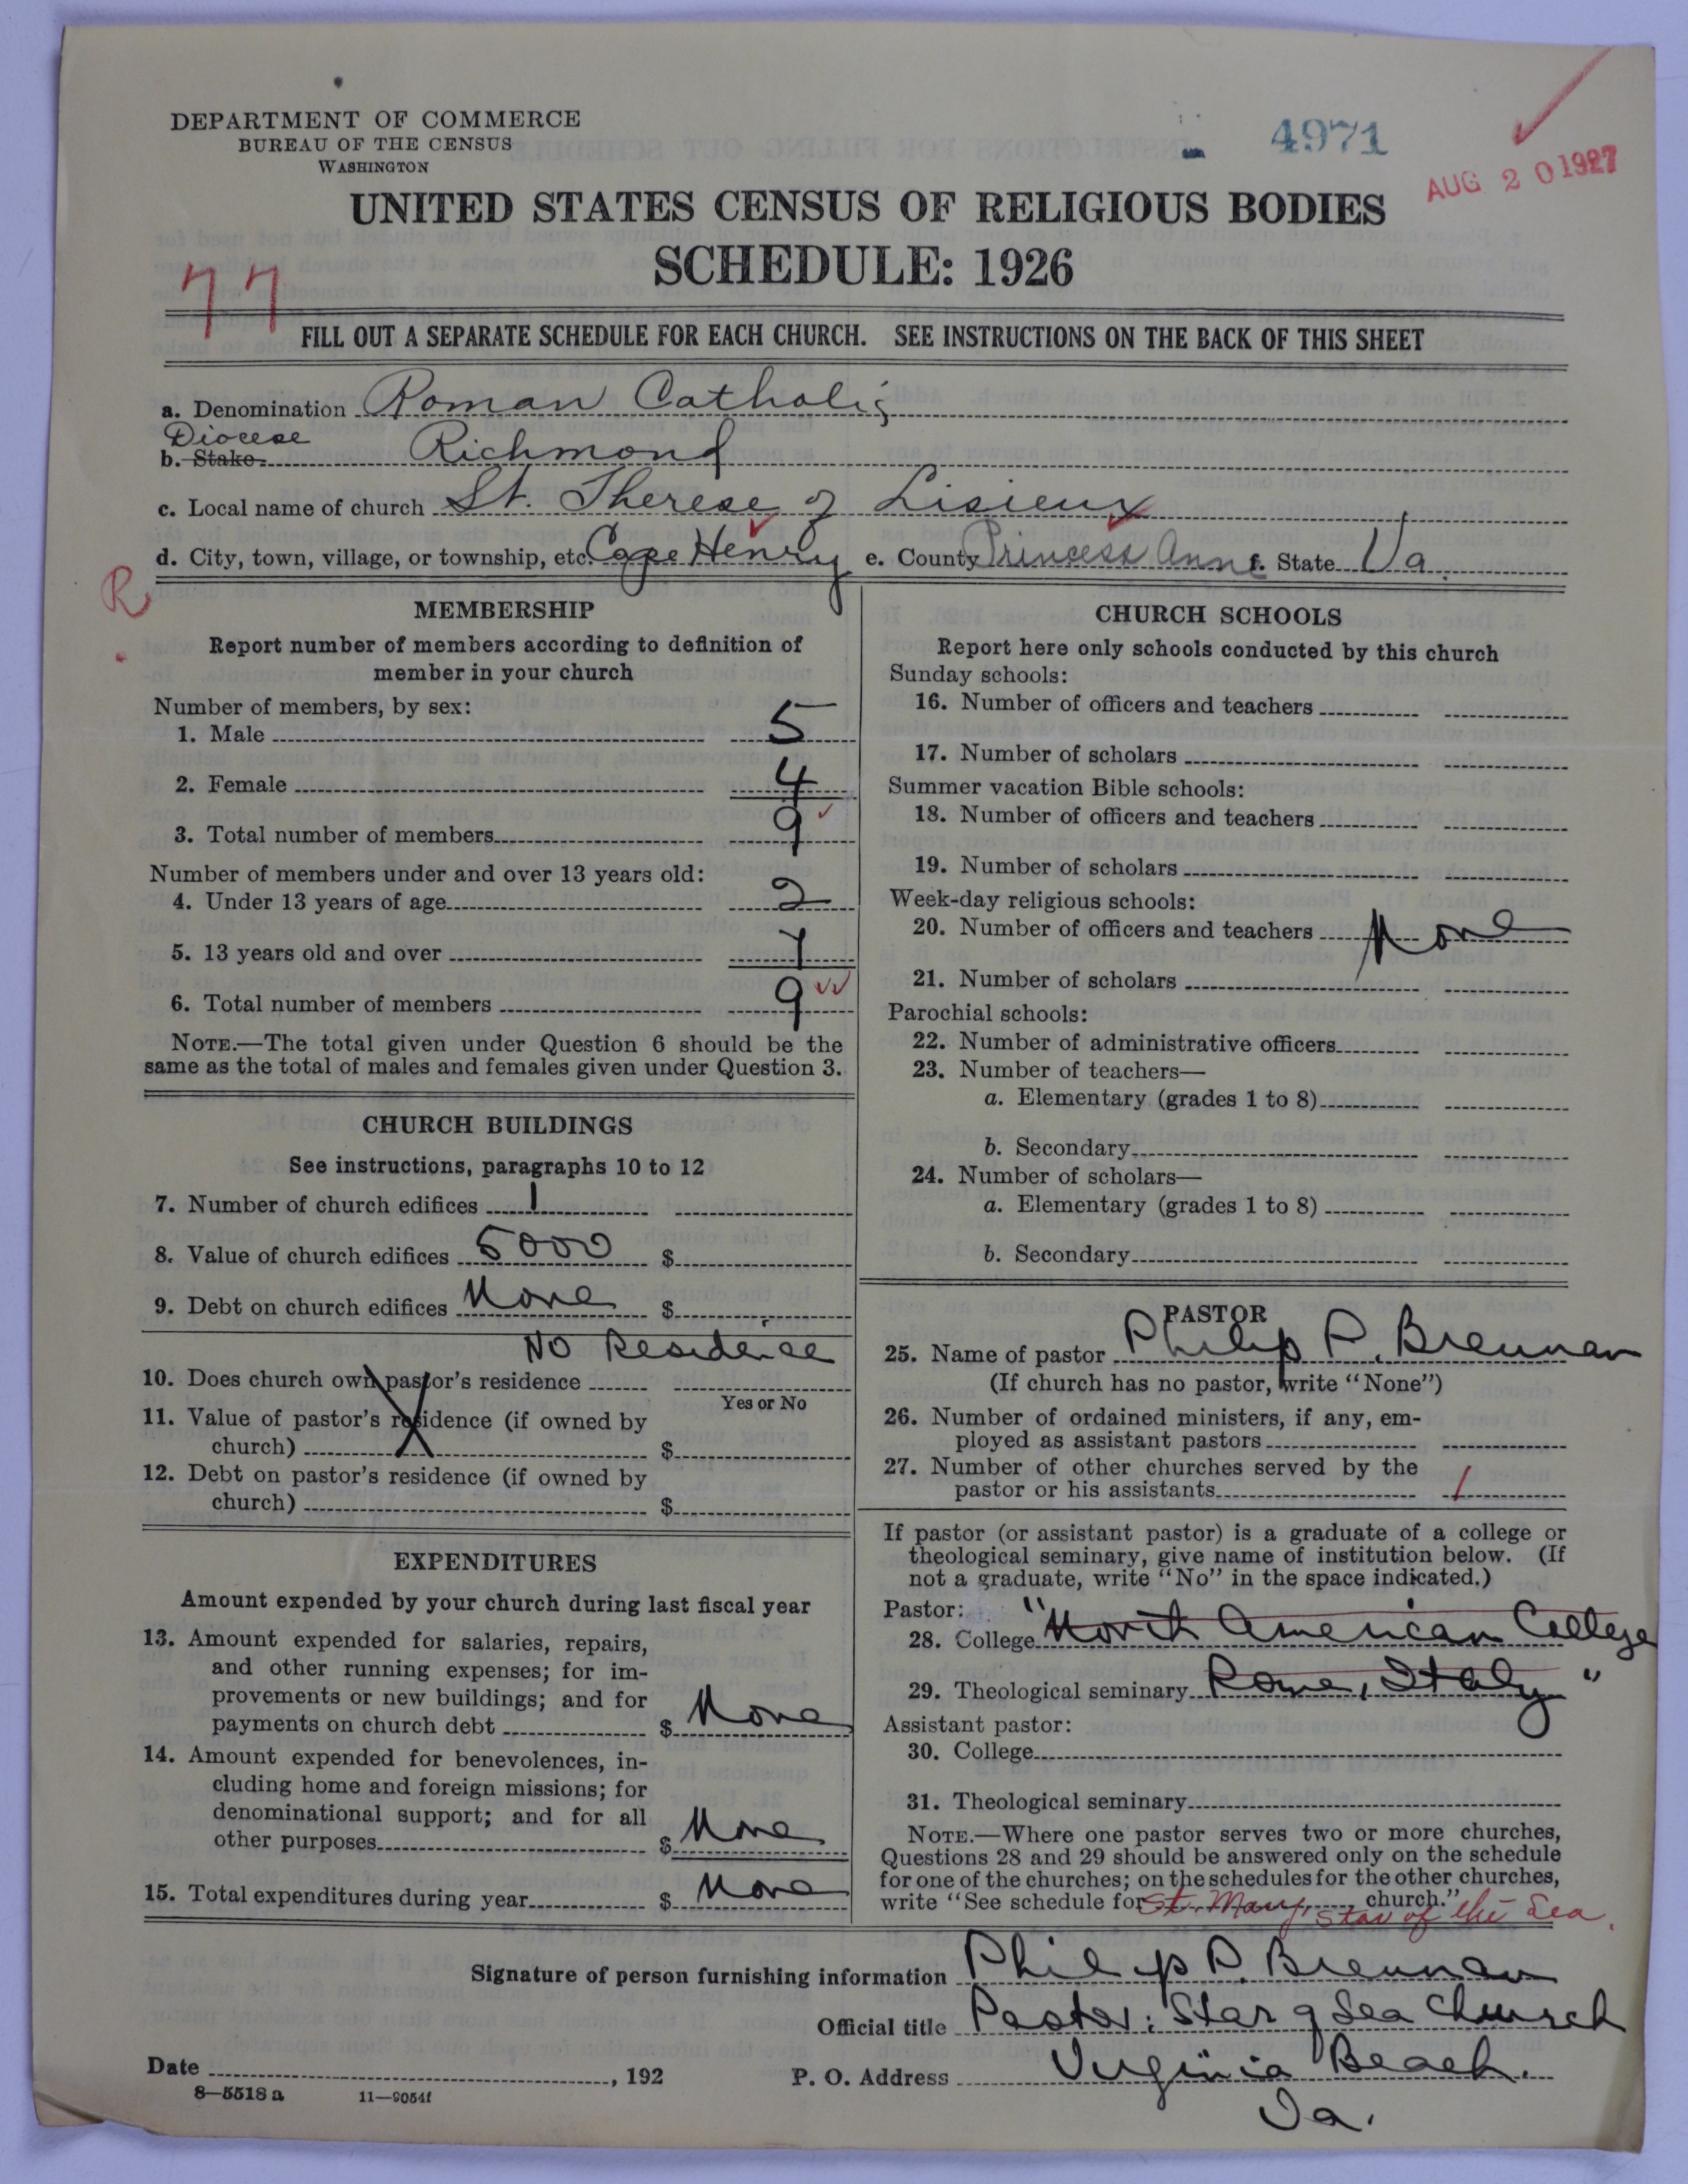 DEPARTMENT OF COMMERCE
BUREAU OF THE CENSUS
WASHINGTON
4971
AUG 20 1927
UNITED STATES CENSUS OF RELIGIOUS BODIES
SCHEDULE: 1926
77
FILL OUT A SEPARATE SCHEDULE FOR EACH CHURCH. SEE INSTRUCTIONS ON THE BACK OF THIS SHEET
a. Denomination Roman Catholic
Diocese
b. Stake Richmond
c. Local name of church St. Therese of Lisieux
d. City, town, village, or township, etc. Cape Henry e. County Princess Anne f. State Va.
R
MEMBERSHIP
Report number of members according to definition of
member in your church
Number of members, by sex:
1. Male 5
2. Female 4
3. Total number of members 9
Number of members under and over 13 years old:
4. Under 13 years of age 2
5. 13 years old and over 7
6. Total number of members 9
NOTE.—The total given under Question 6 should be the
same as the total of males and females given under Question 3.
CHURCH BUILDINGS
See instructions, paragraphs 10 to 12
7. Number of church edifices 1
8. Value of church edifices 5000 $
9. Debt on church edifices None $
No Residence
10. Does church own pastor's residence
Yes or No
11. Value of pastor's residence (if owned by
church) $
12. Debt on pastor's residence (if owned by
church) $
EXPENDITURES
Amount expended by your church during last fiscal year
13. Amount expended for salaries, repairs,
and other running expenses; for im-
provements or new buildings; and for
payments on church debt $ None
14. Amount expended for benevolences, in-
cluding home and foreign missions; for
denominational support; and for all
other purposes $ None
15. Total expenditures during year $ None
CHURCH SCHOOLS
Report here only schools conducted by this church
Sunday schools:
16. Number of officers and teachers
17. Number of scholars
Summer vacation Bible schools:
18. Number of officers and teachers
19. Number of scholars
Week-day religious schools:
20. Number of officers and teachers None
21. Number of scholars
Parochial schools:
22. Number of administrative officers
23. Number of teachers—
a. Elementary (grades 1 to 8)
b. Secondary
24. Number of scholars—
a. Elementary (grades 1 to 8)
b. Secondary
PASTOR
25. Name of pastor Philip P. Brennan
(If church has no pastor, write "None")
26. Number of ordained ministers, if any, em-
ployed as assistant pastors
27. Number of other churches served by the
pastor or his assistants 1
If pastor (or assistant pastor) is a graduate of a college or
theological seminary, give name of institution below. (If
not a graduate, write "No" in the space indicated.)
Pastor:
28. College "North American College
29. Theological seminary Rome, Italy"
Assistant pastor:
30. College
31. Theological seminary
NOTE.—Where one pastor serves two or more churches,
Questions 28 and 29 should be answered only on the schedule
for one of the churches; on the schedules for the other churches,
write "See schedule for St. Mary, Star of the Sea church."
Signature of person furnishing information Philip P. Brennan
Official title Pastor: Star of Sea Church
Date , 192 P. O. Address Virginia Beach.
Va.
8—5518 a 11—9054f